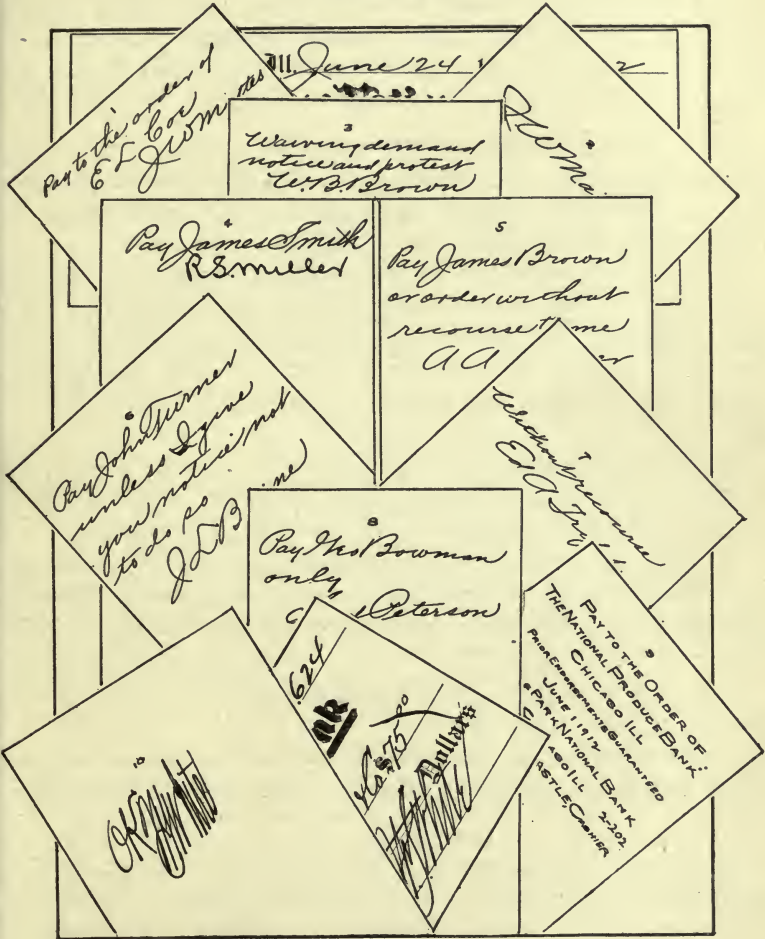 Ill. June 24 1 2
1
Pay to the order of
E L Coe
J W M tes
2
J W Ma
3
Waiving demand
notice and protest
W. B. Brown
4
Pay James Smith
R. S. Miller
5
Pay James Brown
or order without
recourse t me
A A
6
Pay John Turner
unless I give
you notice not
to do so
J L B ne
7
Without recourse
Ed A Fry
8
Pay Geo Bowman
only
C e Peterson
9
PAY TO THE ORDER OF
THE NATIONAL PRODUCE BANK
CHICAGO ILL
PRIOR ENDORSEMENTS GUARANTEED
JUNE 1 1912
PARK NATIONAL BANK
AGO ILL 2-202
ASTLE, CASHIER
10
OK
624
nk
$75 00
Dollars